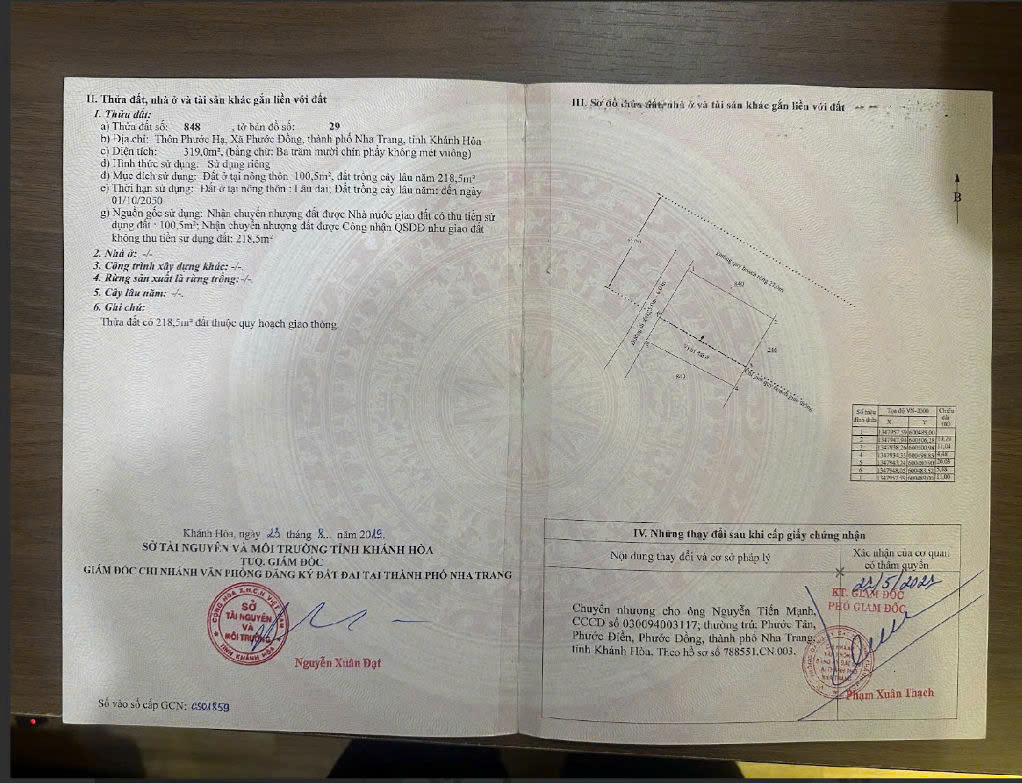 II. Thửa đất, nhà ở và tài sản khác gắn liền với đất
1. Thửa đất:
a) Thửa đất số: 848 , tờ bản đồ số: 29
b) Địa chỉ: Thôn Phước Hạ, Xã Phước Đồng, thành phố Nha Trang, tỉnh Khánh Hòa
c) Diện tích: 319,0m², (bằng chữ: Ba trăm mười chín phẩy không mét vuông)
d) Hình thức sử dụng: Sử dụng riêng
đ) Mục đích sử dụng: Đất ở tại nông thôn 100,5m², đất trồng cây lâu năm 218,5m²
e) Thời hạn sử dụng: Đất ở tại nông thôn : Lâu dài; Đất trồng cây lâu năm: đến ngày
01/10/2050
g) Nguồn gốc sử dụng: Nhận chuyển nhượng đất được Nhà nước giao đất có thu tiền sử
dụng đất : 100,5m²; Nhận chuyển nhượng đất được Công nhận QSDĐ như giao đất
không thu tiền sử dụng đất: 218,5m²
2. Nhà ở: -/-
3. Công trình xây dựng khác: -/-.
4. Rừng sản xuất là rừng trồng: -/-.
5. Cây lâu năm: -/-.
6. Ghi chú:
Thửa đất có 218,5m² đất thuộc quy hoạch giao thông
Khánh Hòa, ngày 23 tháng 8 năm 2019.
SỞ TÀI NGUYÊN VÀ MÔI TRƯỜNG TỈNH KHÁNH HÒA
TUQ. GIÁM ĐỐC
GIÁM ĐỐC CHI NHÁNH VĂN PHÒNG ĐĂNG KÝ ĐẤT ĐAI TẠI THÀNH PHỐ NHA TRANG
SỞ
TÀI NGUYÊN
VÀ
MÔI TRƯỜNG
TỈNH KHÁNH HÒA
Nguyễn Xuân Đạt
Số vào sổ cấp GCN: CS01859
III. Sơ đồ thửa đất, nhà ở và tài sản khác gắn liền với đất
B
840
246
843
Số hiệu
đỉnh thửa
Tọa độ VN-2000
X Y
Chiều
dài
(m)
IV. Những thay đổi sau khi cấp giấy chứng nhận
Nội dung thay đổi và cơ sở pháp lý
Xác nhận của cơ quan
có thẩm quyền
Chuyển nhượng cho ông Nguyễn Tiến Mạnh,
CCCD số 030094003117; thường trú: Phước Tân,
Phước Điền, Phước Đồng, thành phố Nha Trang,
tỉnh Khánh Hòa, Theo hồ sơ số 788551.CN.003.
KT. GIÁM ĐỐC
PHÓ GIÁM ĐỐC
Phạm Xuân Thạch